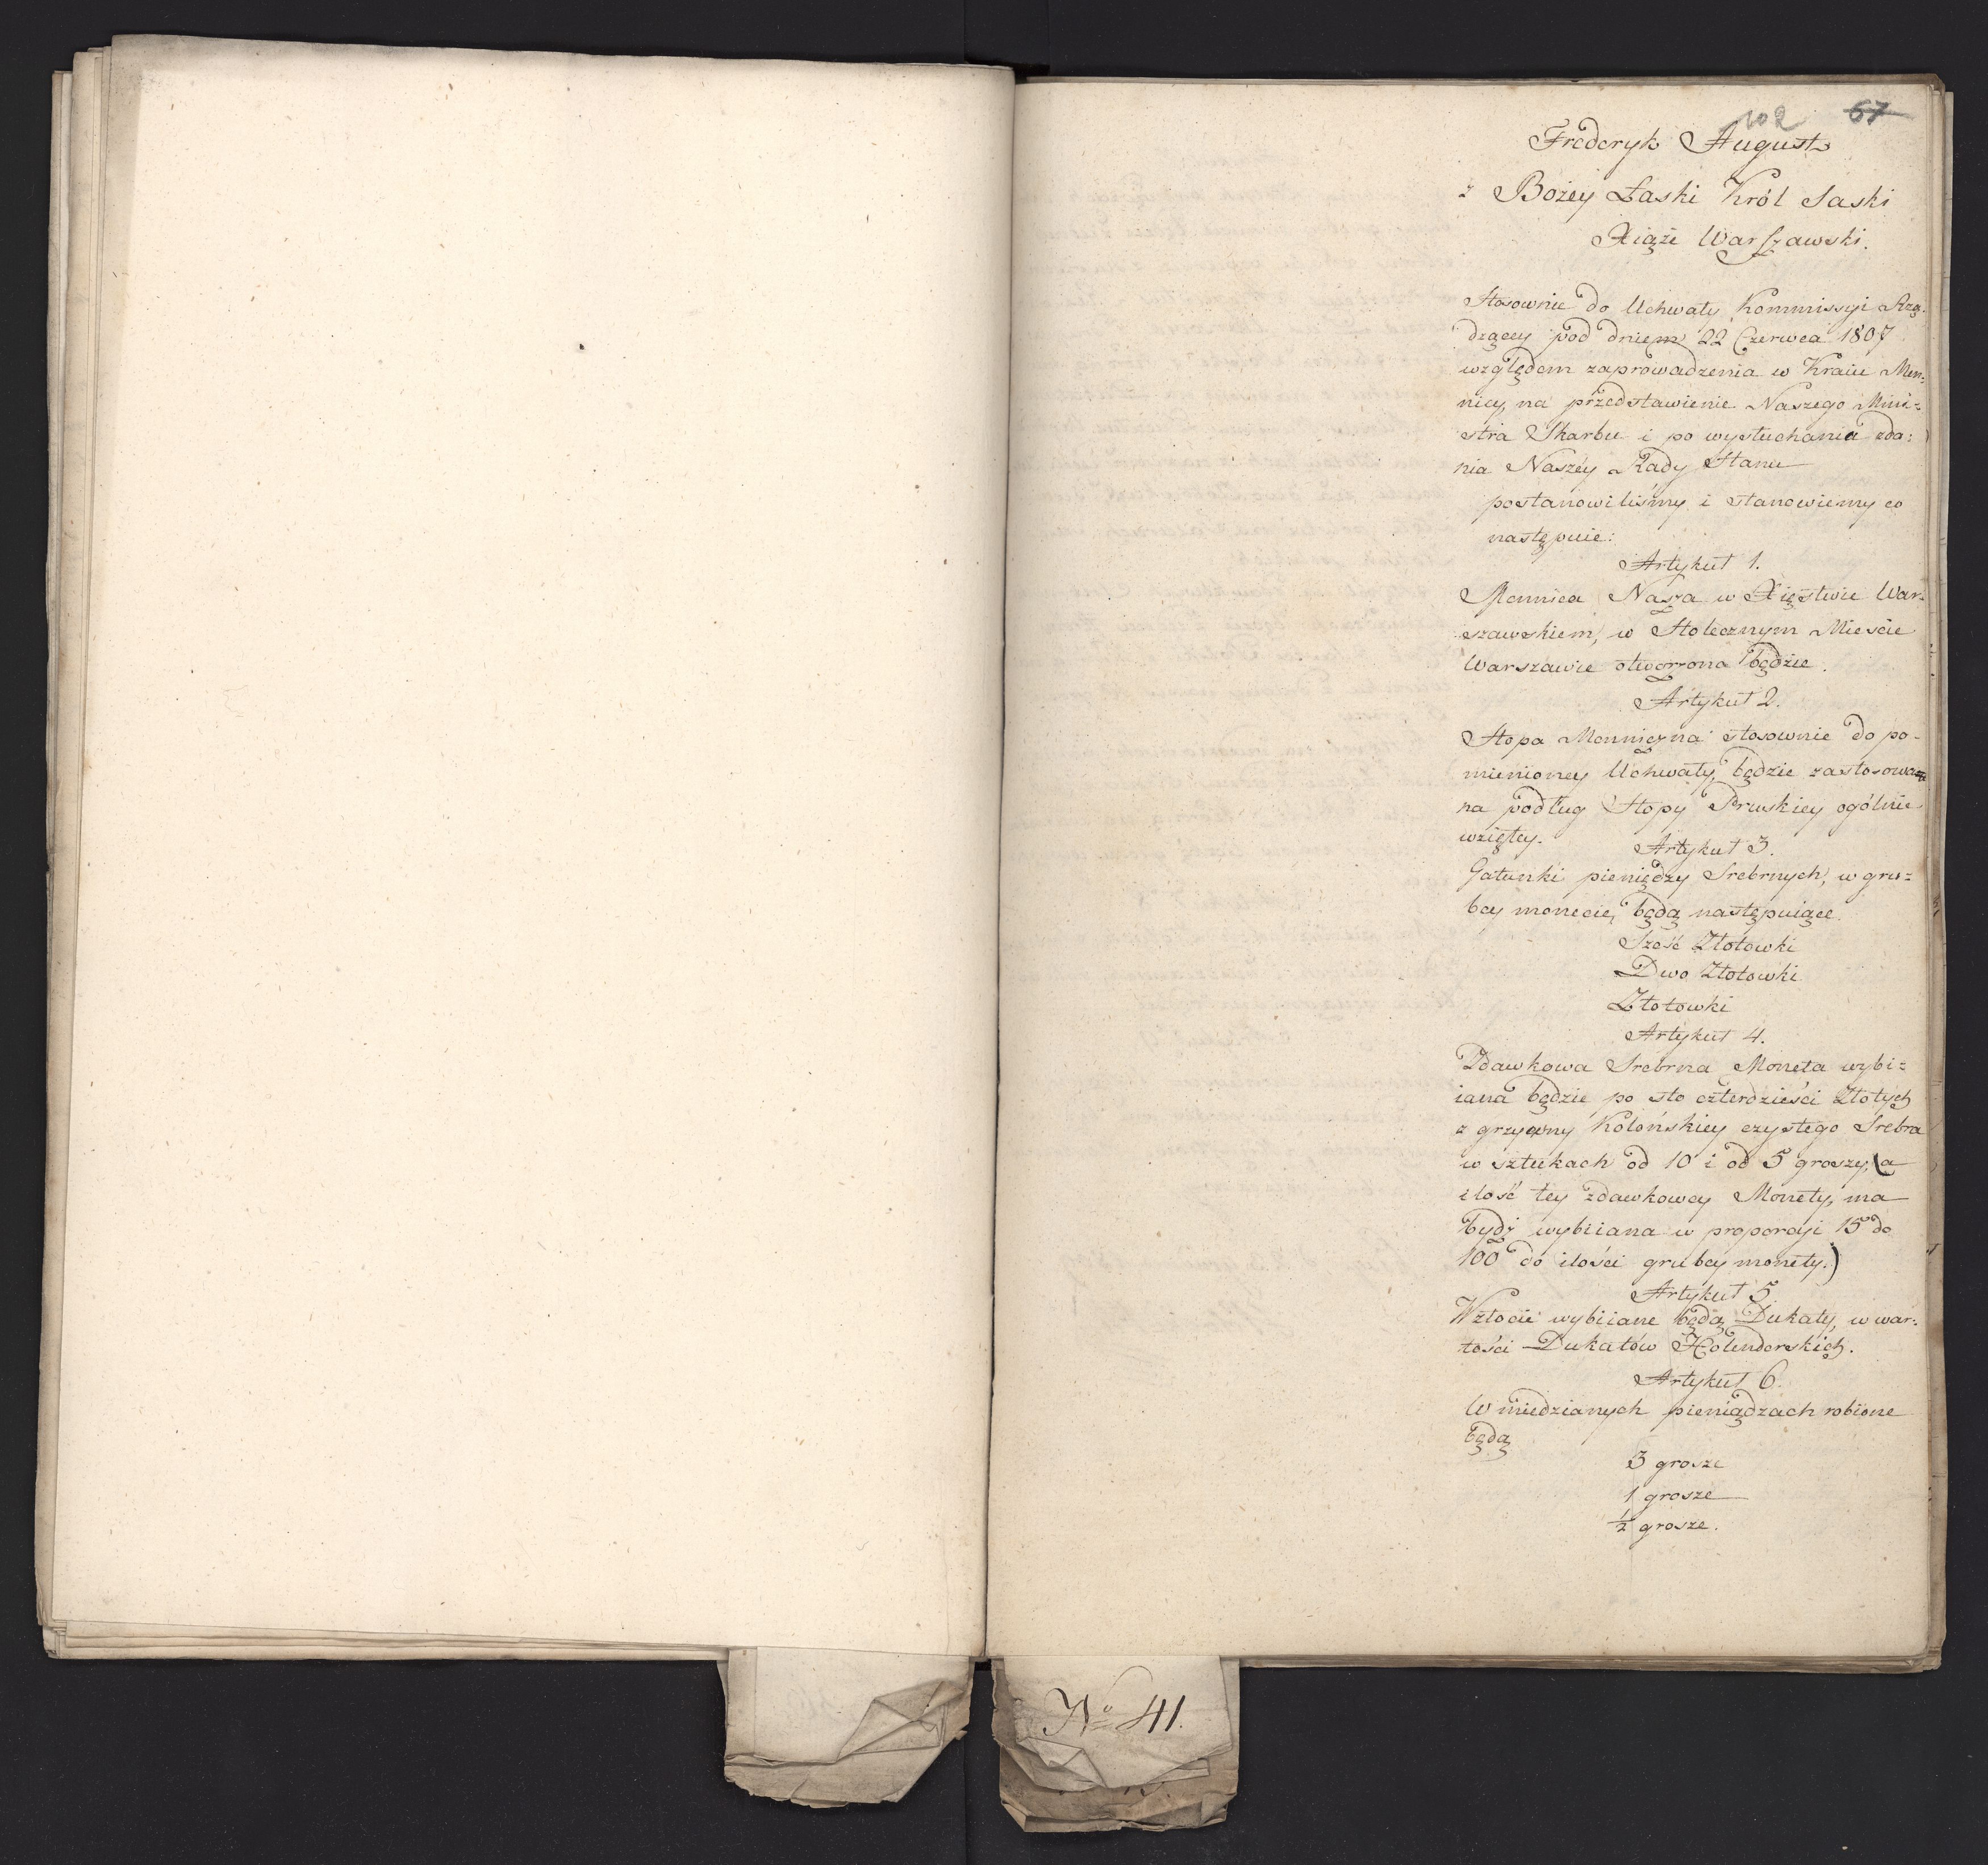 102 67
Frederyk August
z Bożey Łaski Król Saski
Xiąże Warszawski.
Stosownie do Uchwały Kommissyi Rzą-
dzącey pod dniem 22 Czerwca 1807
względem zaprowadzenia w Kraiu Men=
nicy, na przedstawienie Naszego Mini=
stra Skarbu i po wysłuchania zda=
nia Naszéy Rady Stanu
postanowiliśmy i stanowiemy co
następuie:
Artykuł 1.
Mennica Nasza w Xięstwie War=
szawskiem, w Stołecznym Mieście
Warszawie otworzona będzie.
Artykuł 2.
Stopa Menniczna stosownie do po-
mienioney Uchwały, będzie zastosowa=
na podług Stopy Pruskiey ogólnie
wziętey.
Artykuł 3.
Gatunki pieniędzy Srebrnych, w gru=
bey monecie, będą następuiące.
Sześć Złotowki
Dwo Złotowki
Złotowki
Artykuł 4.
Zdawkowa Srebrna Moneta wybi=
iana będzie po sto czterdzieści Złotych
z grzywny Kolońskiey czystego Srebra
w sztukach od 10 i od 5 groszy, (a
ilość tey zdawkowey Monety, ma
bydź wybiiana w proporcyi 15 do
100 do ilości grubey monety.)
Artykuł 5.
W złocie wybiiane będą Dukaty, w war=
tości Dukatów Holenderskich.
Artykuł 6.
W miedzianych pieniądzach robione
będą
3 grosze
1 grosze
½ grosze.
No 41.